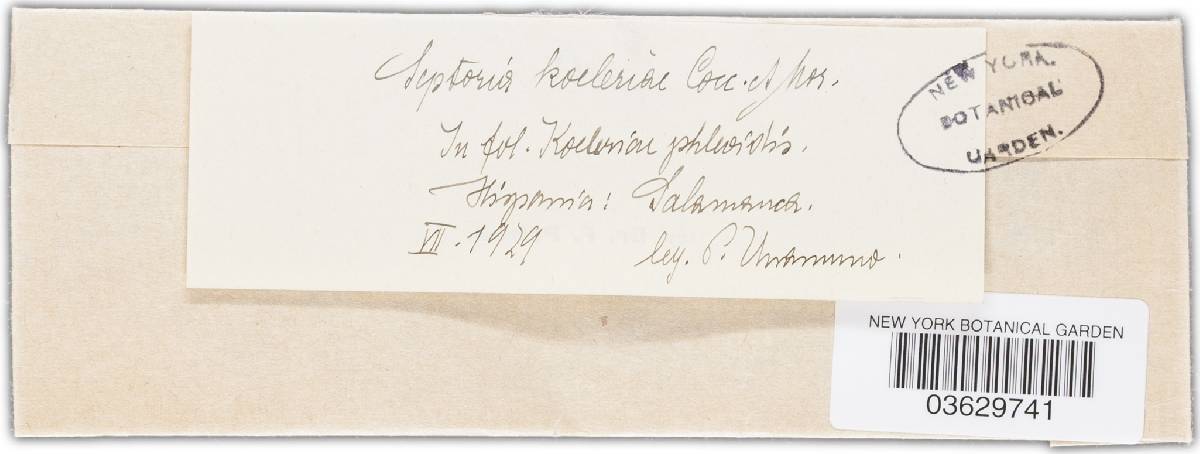 Septoria koeleriae Cocc. et Mor.
In fol. Koeleriae phleoidis.
Hispania: Salamanca.
VII. 1929 leg. P. Unamuno.
NEW YORK
BOTANICAL
GARDEN.
NEW YORK BOTANICAL GARDEN
03629741